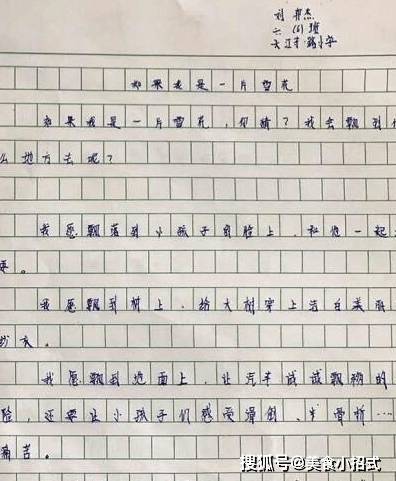 刘
二(6)班
如果我是一片雪花
如果我是一片雪花，你猜？我会飘到什
么地方去呢？
我愿飘落到小孩子的脸上，和他一起
耍。
我愿飘到树上，给大树穿上洁白美丽
纱衣。
我愿飘到地面上，让汽车试试飘的
险，还要让小孩子们感受滑倒、骨折…
痛苦。
搜狐号@美食小招式